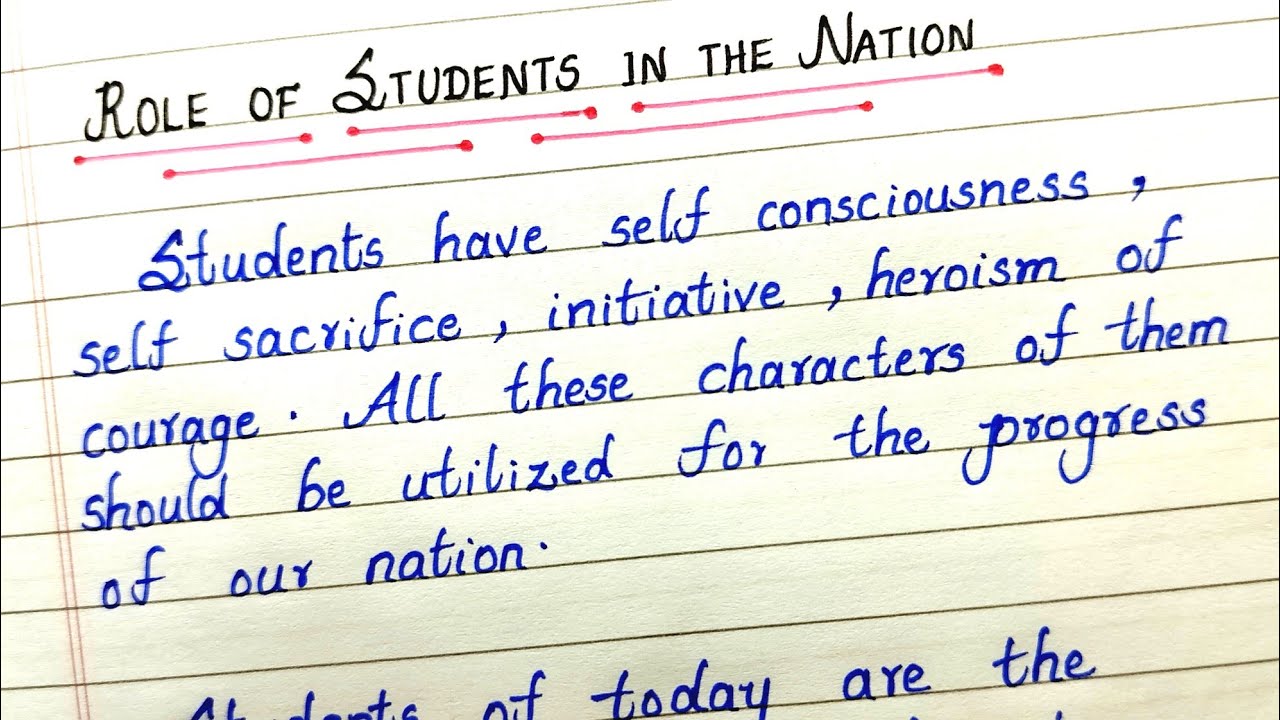 ROLE OF STUDENTS IN THE NATION
Students have self consciousness,
self sacrifice, initiative, heroism of
courage. All these characters of them
should be utilized for the progress
of our nation.
Students of today are the